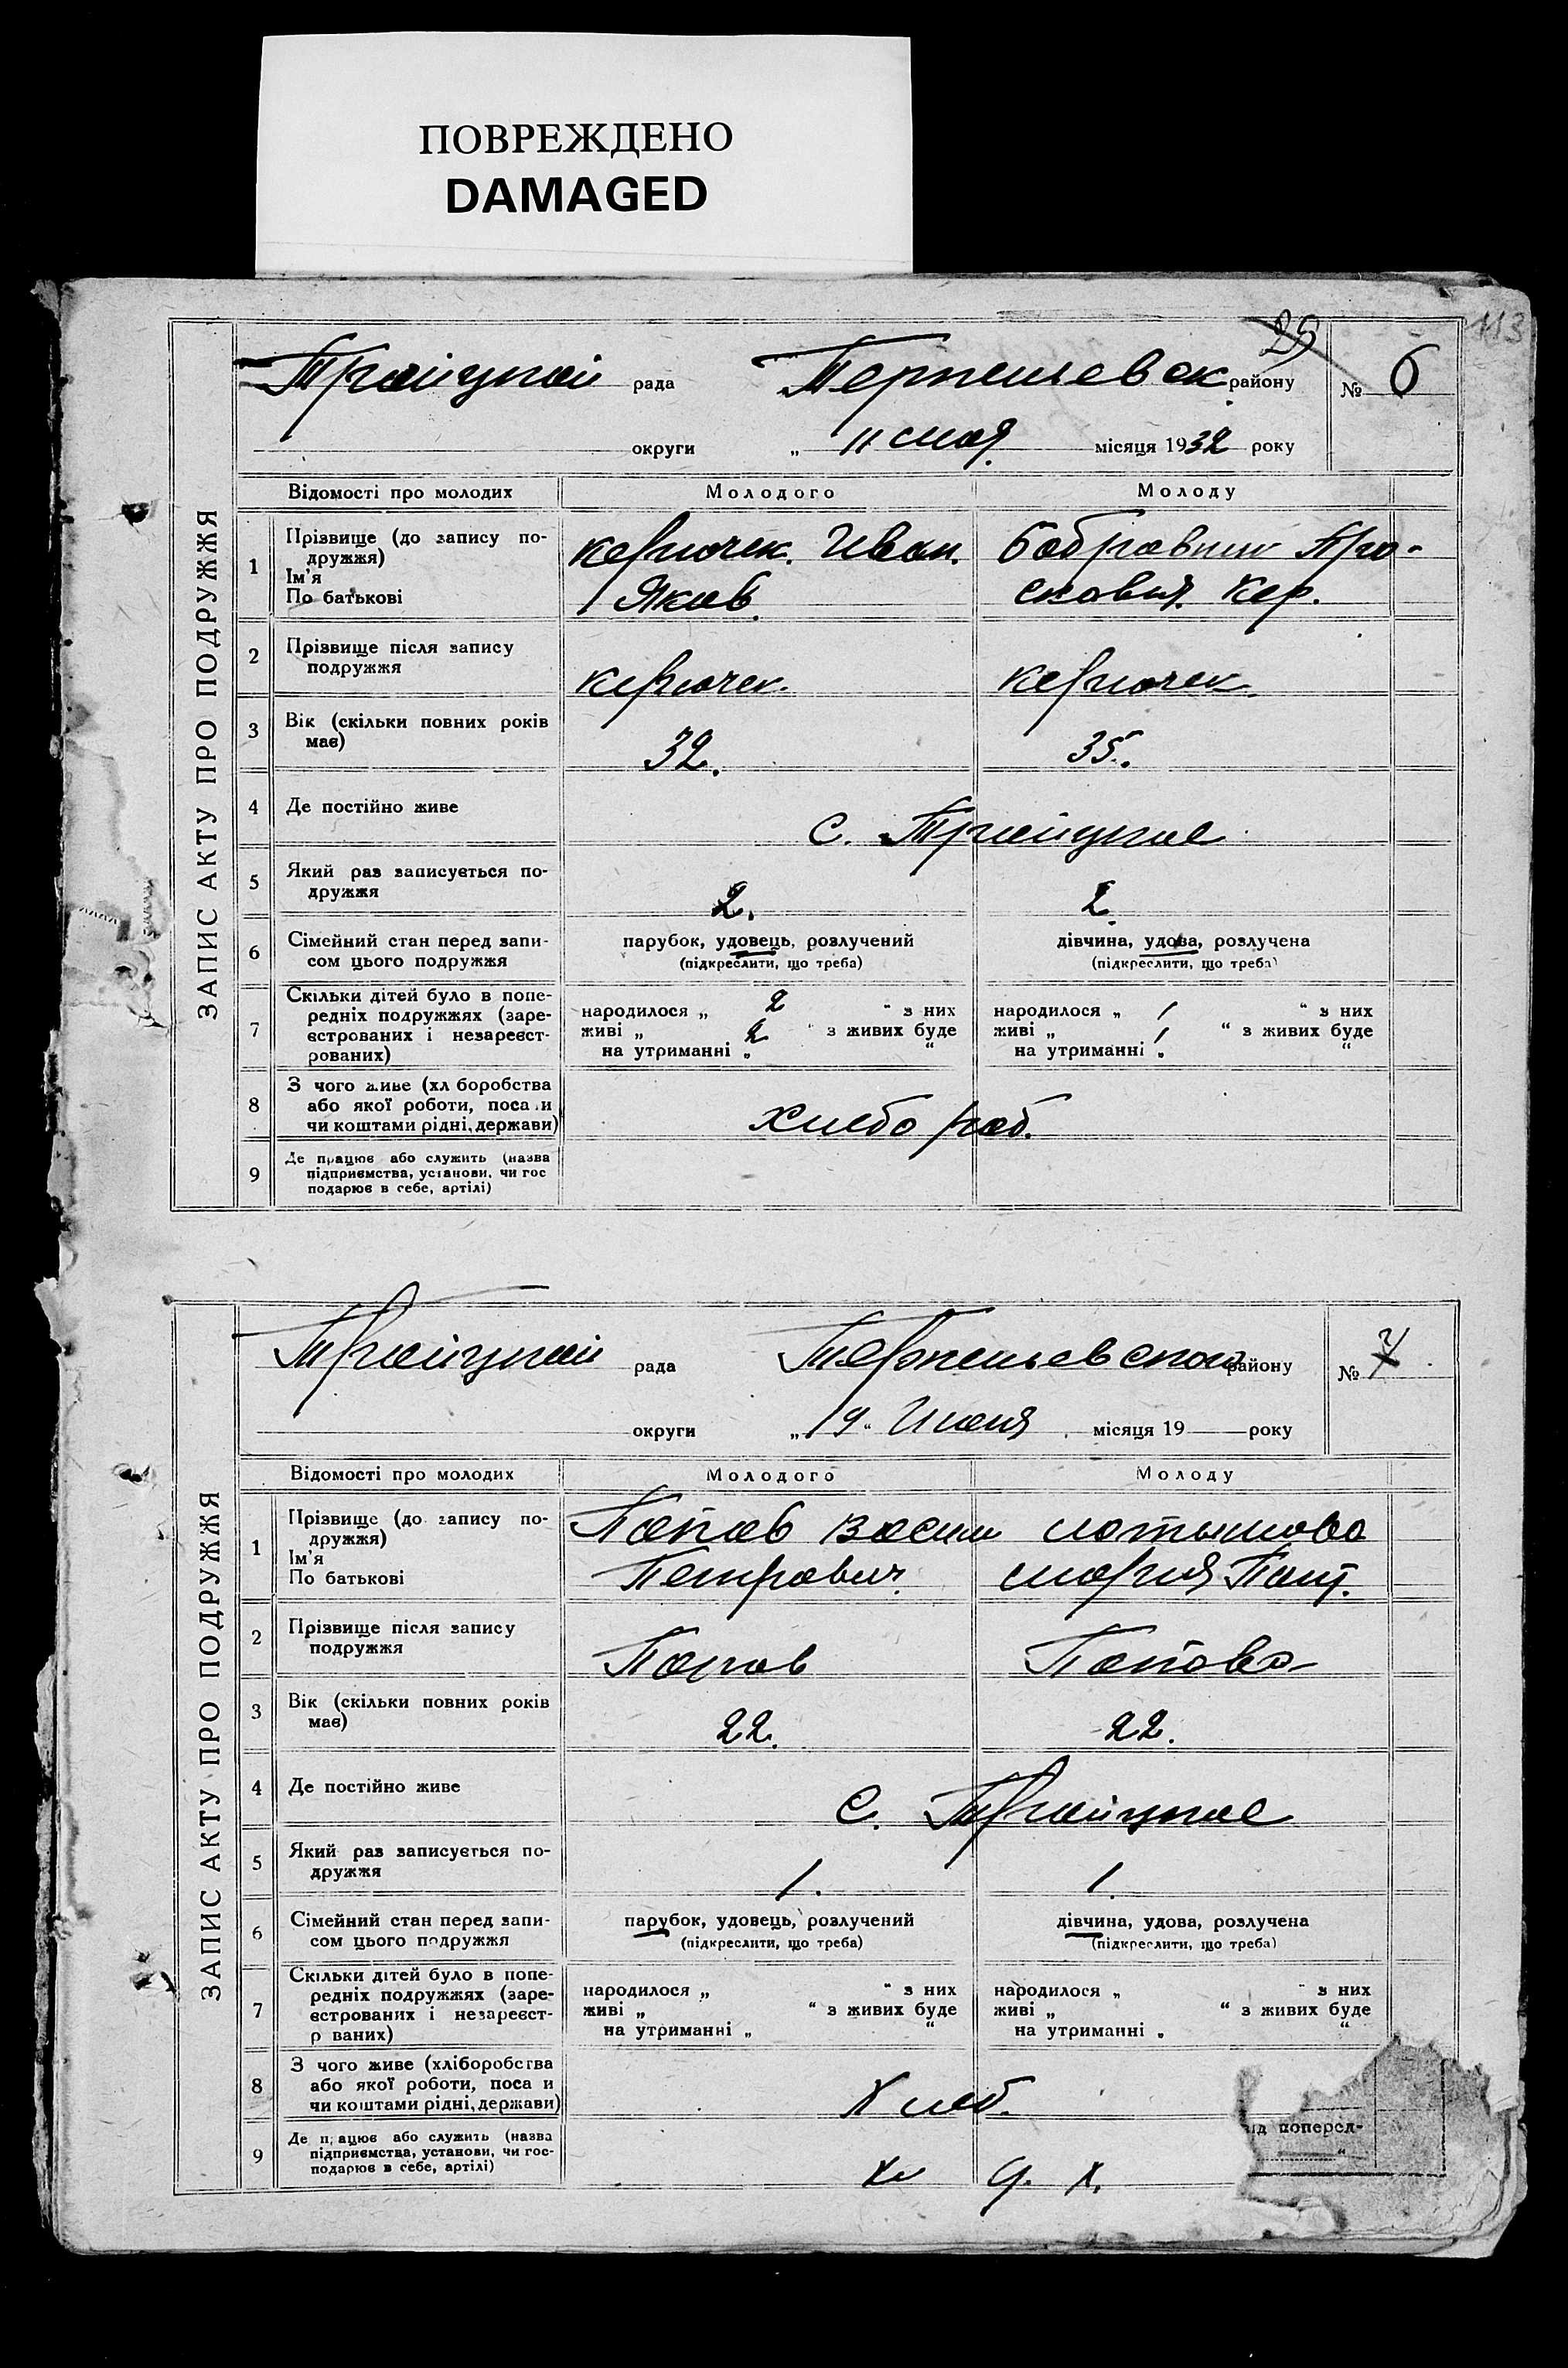 ПОВРЕЖДЕНО
DAMAGED
113
ЗАПИС АКТУ ПРО ПОДРУЖЖЯ
25
Троицкой рада Терпеньевск. району № 6
округи „ 11 мая. місяця 1932 року
Відомості про молодих Молодого Молоду
1 Прізвище (до запису по-
дружжя)
Ім'я
По батькові
Иван.
Яков.
Про-
сковия. Кер.
2 Прізвище після запису
подружжя
3 Вік (скільки повних років
має)
32. 35.
4 Де постійно живе
С. Троицкое
5 Який раз записується по-
дружжя
2. 2.
6 Сімейний стан перед запи-
сом цього подружжя
парубок, удовець, розлучений
(підкреслити, що треба)
дівчина, удова, розлучена
(підкреслити, що треба)
7 Скільки дітей було в попе-
редніх подружжях (заре-
єстрованих і незареєст-
рованих)
народилося „ 2 “ з них
живі „ 2 “ з живих буде
на утриманні „ “
народилося „ 1 “ з них
живі „ 1 “ з живих буде
на утриманні „ “
8 З чого живе (хл боробства
або якої роботи, поса и
чи коштами рідні, держави)
Хлебо роб.
9 Де працює або служить (назва
підприємства, установи, чи гос
подарює в себе, артілі)
ЗАПИС АКТУ ПРО ПОДРУЖЖЯ
Троицкой рада Терпеньевского району № 7
округи „ 19 “ Июня місяця 19 року
Відомості про молодих Молодого Молоду
1 Прізвище (до запису по-
дружжя)
Ім'я
По батькові
Попов Васил
Петрович.
Латышова
Мария Пант.
2 Прізвище після запису
подружжя
Попов Попова
3 Вік (скільки повних років
має)
22. 22.
4 Де постійно живе
С. Троицкое
5 Який раз записується по-
дружжя
1. 1.
6 Сімейний стан перед запи-
сом цього подружжя
парубок, удовець, розлучений
(підкреслити, що треба)
дівчина, удова, розлучена
(підкреслити, що треба)
7 Скільки дітей було в попе-
редніх подружжях (заре-
єстрованих і незареєст-
р ваних)
народилося „ “ з них
живі „ “ з живих буде
на утриманні „ “
народилося „ “ з них
живі „ “ з живих буде
на утриманні „ “
8 З чого живе (хліборобства
або якої роботи, поса и
чи коштами рідні, держави)
Хлеб.
9 Де п ацює або служить (назва
підприємства, установи, чи гос-
подарює в себе, артілі)
ід поперед-